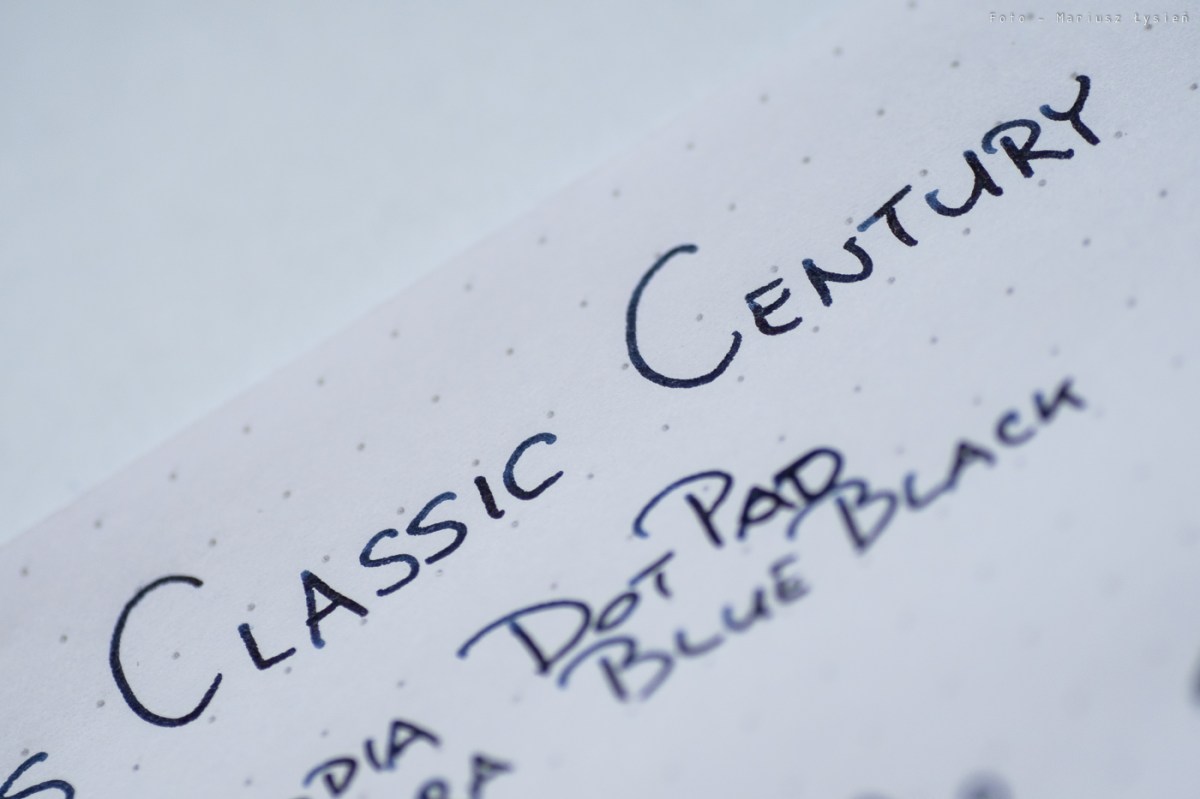 Foto - Mariusz Łysień
S CLASSIC CENTURY
DIA DOT PAD
RA BLUE BLACK